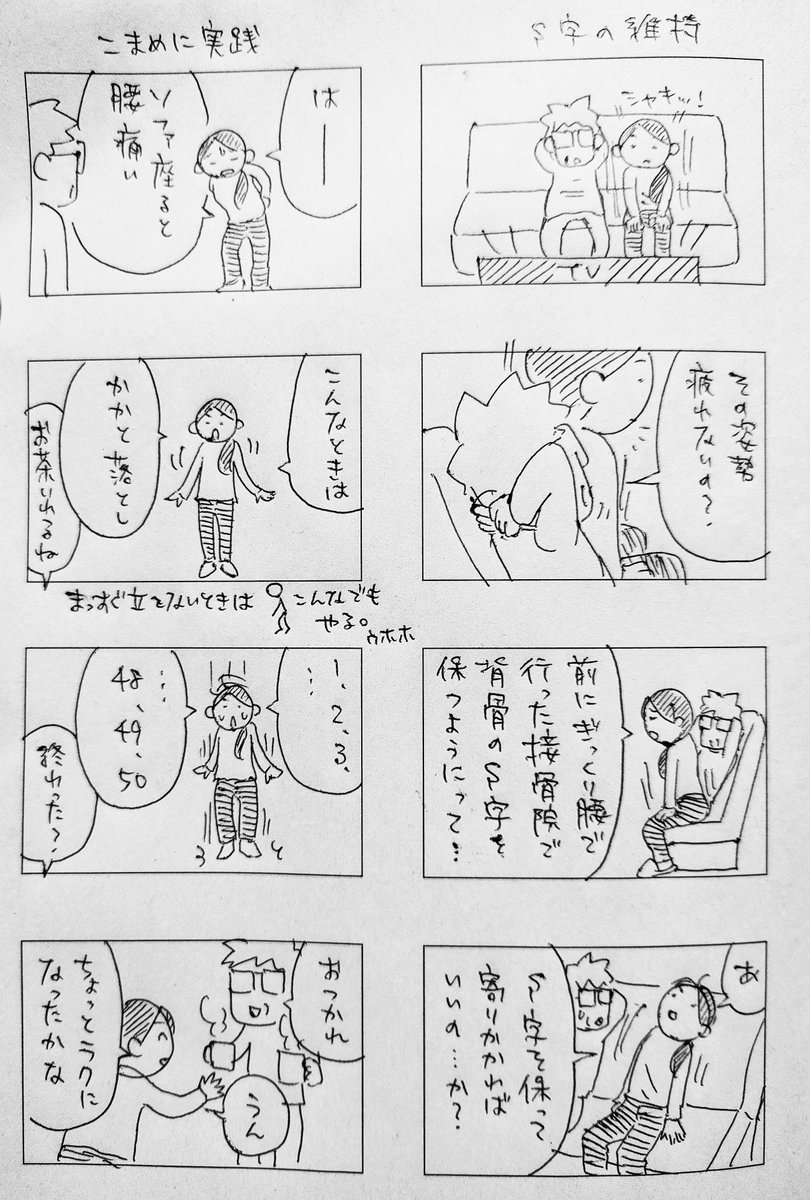 S字の維持
シャキッ!
TV
その姿勢
疲れないの?
前にぎっくり腰で
行った接骨院で
背骨のS字を
保つようにって…
あ
S字を保って
寄りかかれば
いいの…か?
こまめに実践
はー
ソファ座ると
腰痛い
こんなときは
かかと落とし
お茶いれるね
まっすぐ立てないときは
こんなでも
やる。
ウホホ
1、2、3、
…
…
48、
49、
50
終わった?
おつかれ
うん
ちょっとラクに
なったかな